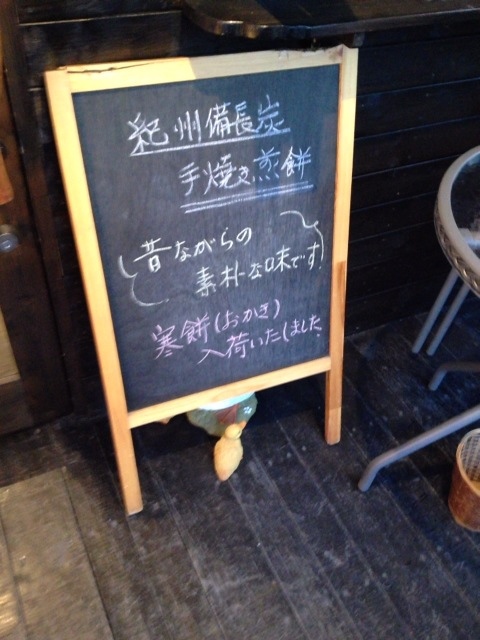 紀州備長炭
手焼き煎餅
昔ながらの
素朴な味です
寒餅(おかき)
入荷いたしました